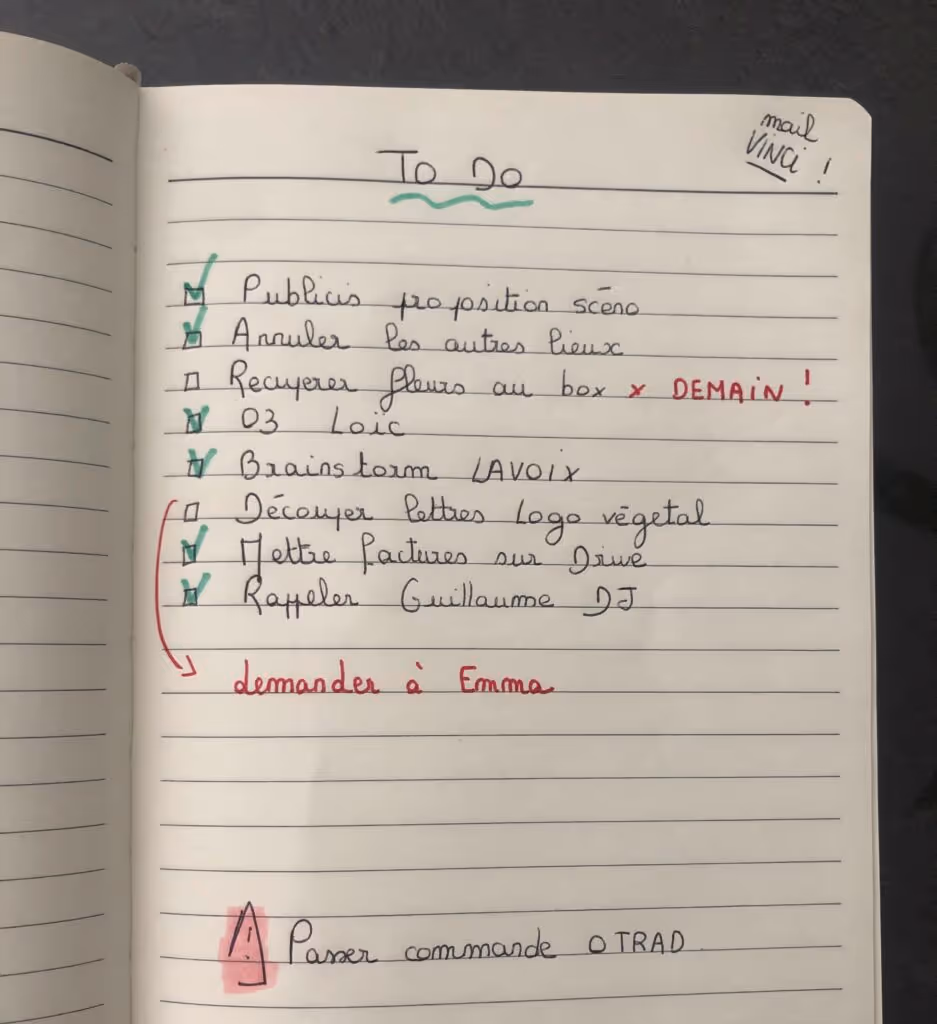 mail
VINCI !
To Do
Publicis proposition scéno
Annuler les autres lieux
Recuperer fleurs au box x DEMAIN !
03 Loïc
Brainstorm LAVOIX
Découper lettres Logo végétal
Mettre factures sur Drive
Rappeler Guillaume DJ
demander à Emma
! Passer commande OTRAD